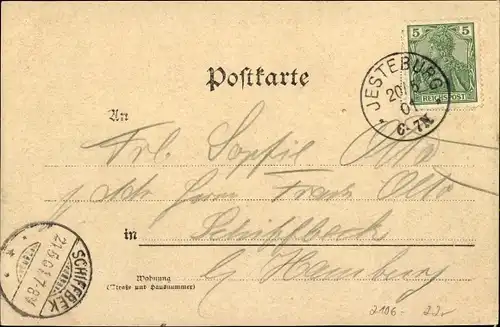 5 5
REICHSPOST
JESTEBURG
20/6
01
6-7N
Postkarte
An
Frl. Sophie Otto
Herrn Frank Otto
in Schiffbeck
b/ Hamburg
SCHIFFBEK
21.6.01.7-8V
Wohnung
(Straße und Hausnummer)
2106 - 22